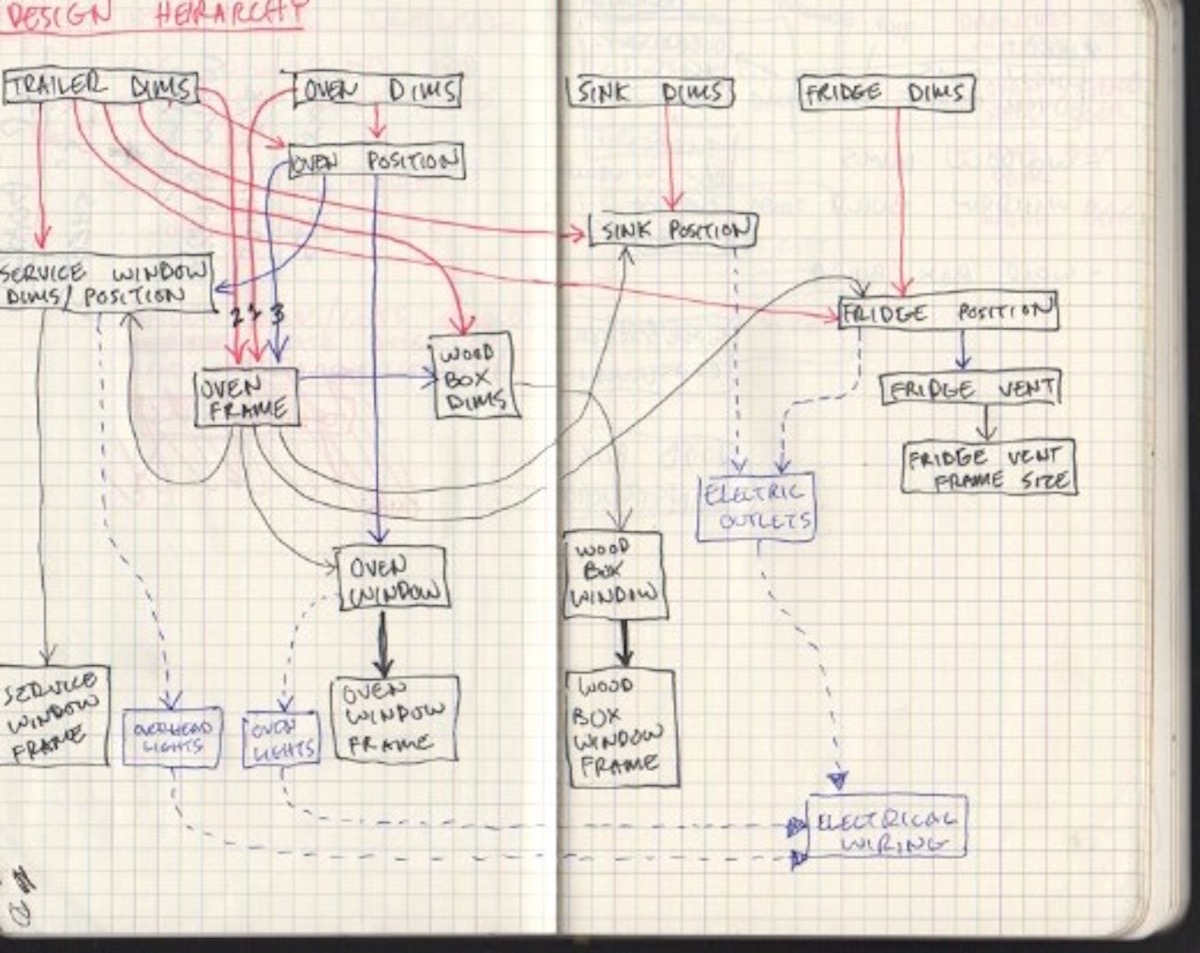 DESIGN HEIRARCHY
TRAILER DIMS
OVEN DIMS
SINK DIMS
FRIDGE DIMS
OVEN POSITION
SINK POSITION
SERVICE WINDOW
DIMS/POSITION
2
1
3
FRIDGE POSITION
WOOD
BOX
DIMS
OVEN
FRAME
FRIDGE VENT
FRIDGE VENT
FRAME SIZE
ELECTRIC
OUTLETS
OVEN
WINDOW
WOOD
BOX
WINDOW
SERVICE
WINDOW
FRAME
OVERHEAD
LIGHTS
OVEN
LIGHTS
OVEN
WINDOW
FRAME
WOOD
BOX
WINDOW
FRAME
ELECTRICAL
WIRING